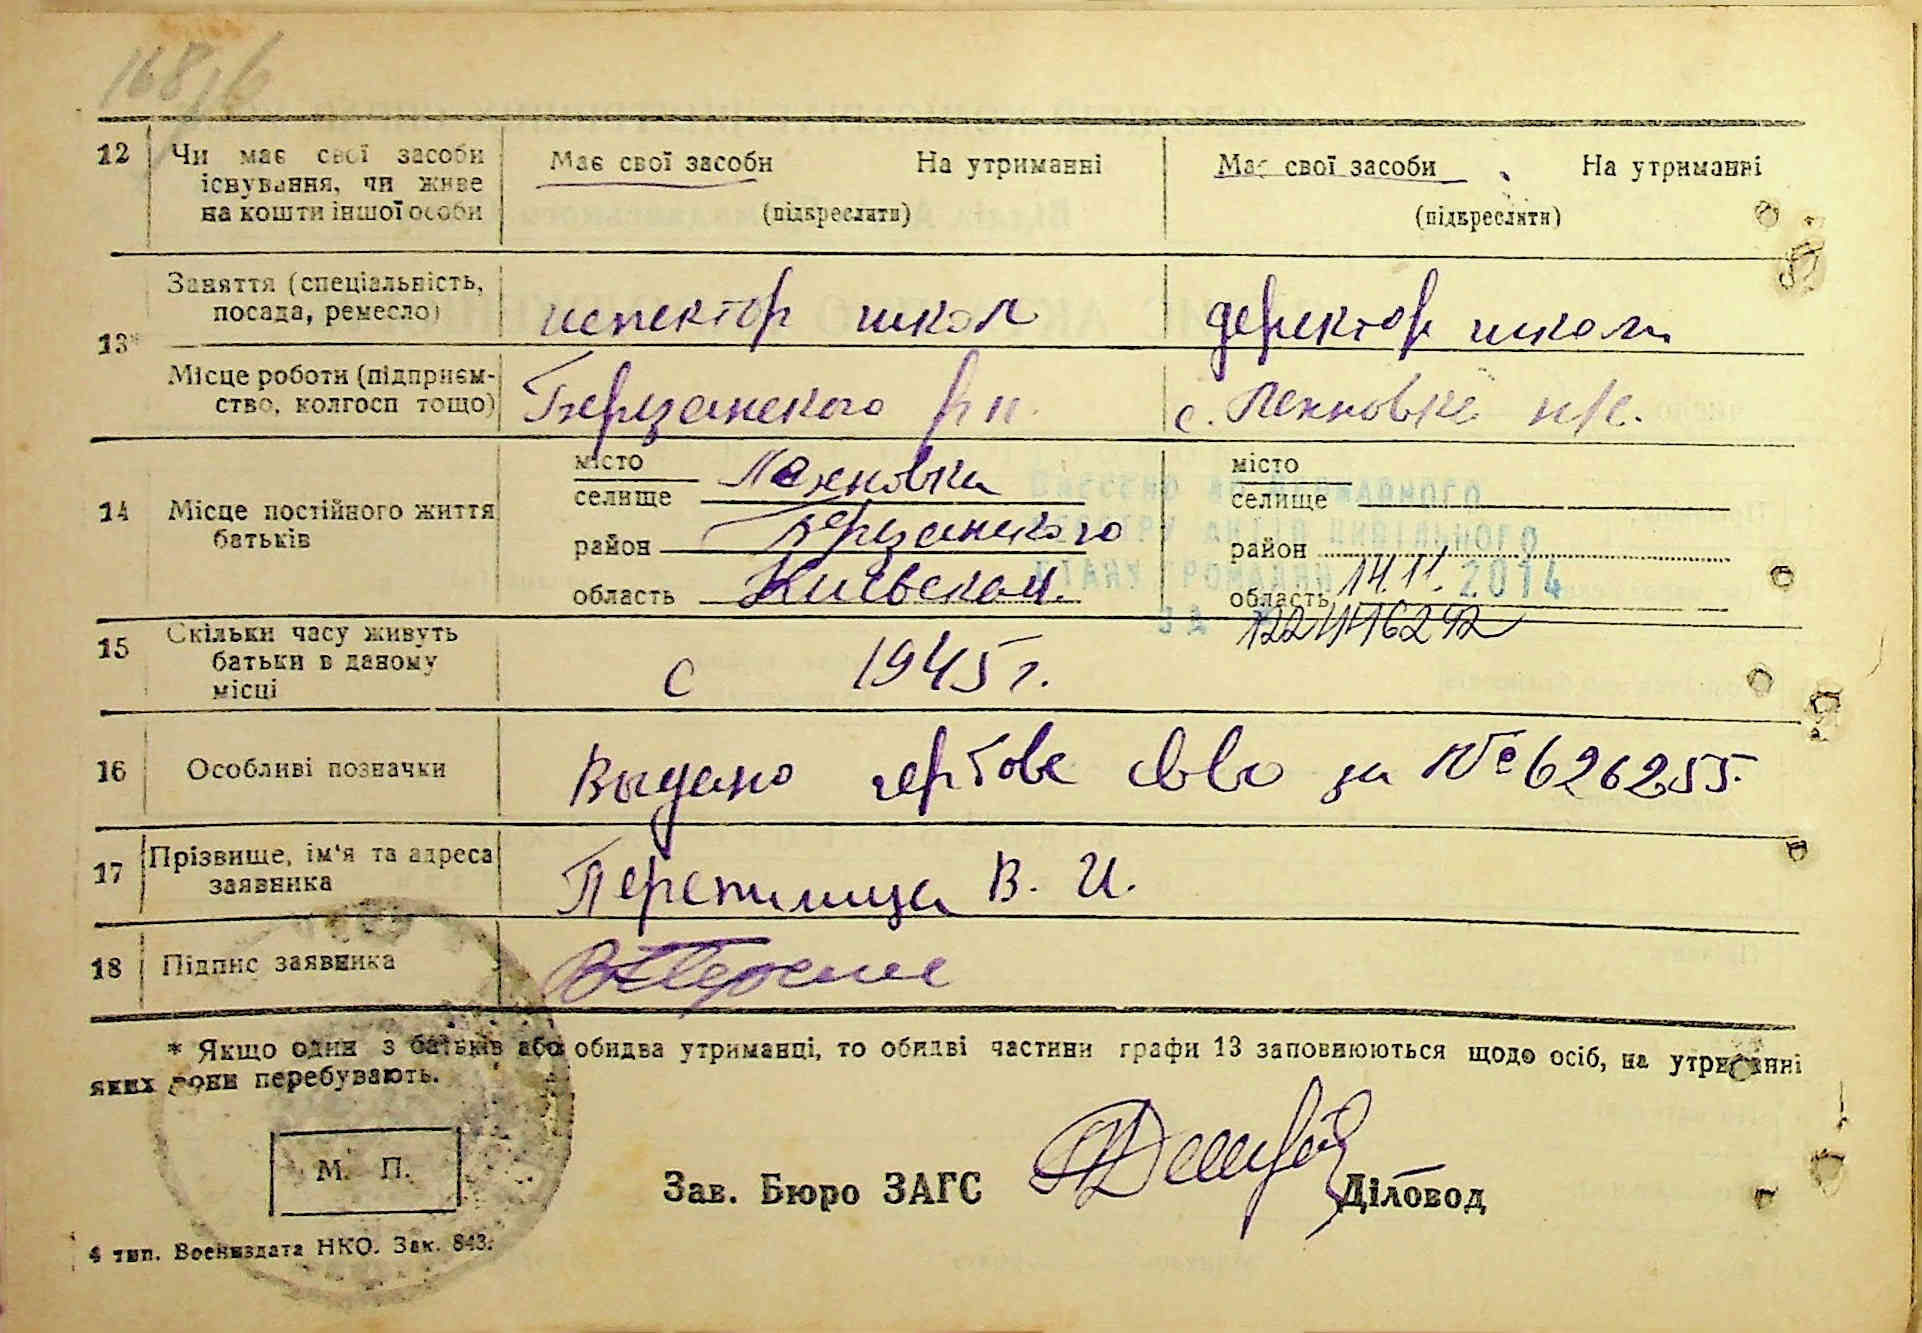 168/б
12 Чи має свої засоби існування, чи живе на кошти іншої особи
Має свої засоби На утриманні
(підкреслити)
Має свої засоби На утриманні
(підкреслити)
13*
Заняття (спеціальність, посада, ремесло)
испектор школ
деректор школи
Місце роботи (підприєм-
ство, колгосп тощо)
с.
14 Місце постійного життя
батьків
місто
селище
район
область Киевской.
місто
селище
район
область
Внесено до Державного
реєстру актів цивільного
стану громадян 14.11.2014
за №
15 Скільки часу живуть
батьки в даному
місці
с 1945 г.
16 Особливі позначки
Выдано гербове св-во за № 626255.
17 Прізвище, ім'я та адреса
заявника
В. И.
18 Підпис заявника
* Якщо один з батьків або обидва утриманці, то обидві частини графи 13 заповнюються щодо осіб, на утриманні
яких вони перебувають.
М. П.
Зав. Бюро ЗАГС
Діловод
4 тип. Воениздата НКО. Зак. 843.